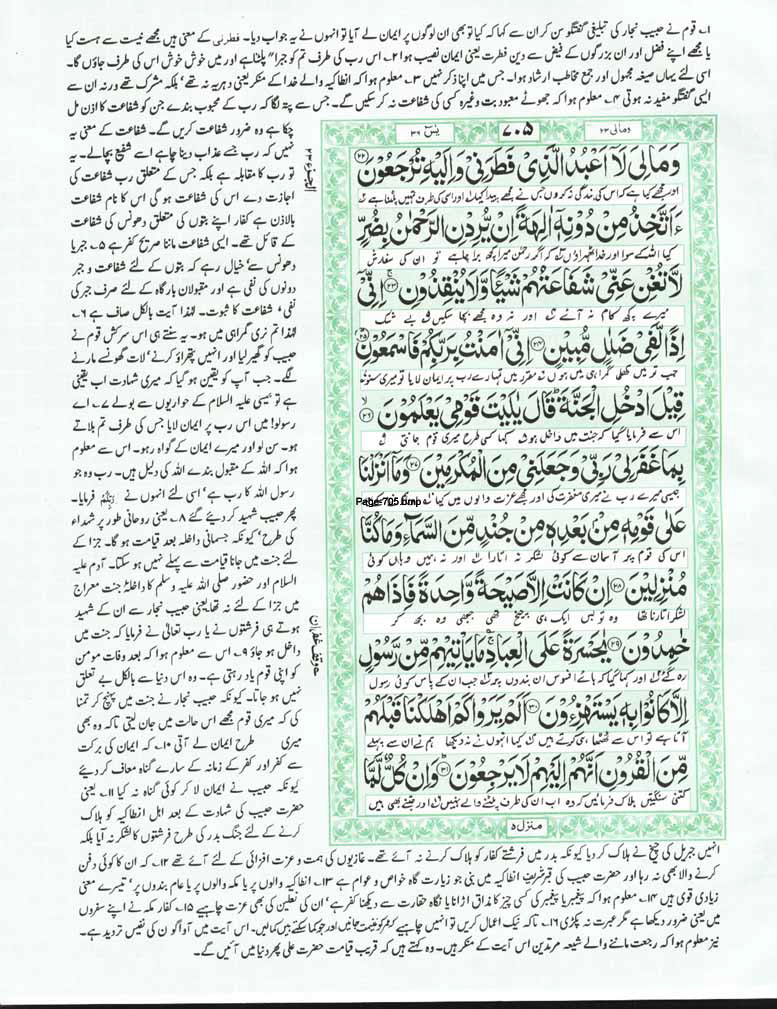 ۱۔ قوم نے حبیب نجار کی تبلیغی گفتگو سن کر ان سے کہا کہ کیا تو بھی ان لوگوں پر ایمان لے آیا تو انہوں نے یہ جواب دیا۔ فطرنی کے معنی ہیں مجھے نیست سے ہست کیا
یا مجھے اپنے فضل اور ان بزرگوں کے فیض سے دین فطرت یعنی ایمان نصیب ہوا ۲۔ اس رب کی طرف تم کو جبراً پلٹنا ہے اور میں خوش خوش اس کی طرف جاؤں گا۔
اسی لئے یہاں صیغہ مجہول اور جمع مخاطب ارشاد ہوا۔ جس میں اپنا ذکر نہیں ۳۔ معلوم ہوا کہ انطاکیہ والے خدا کے منکر یعنی دہریہ نہ تھے بلکہ مشرک تھے ورنہ ان سے
ایسی گفتگو مفید نہ ہوتی ۴۔ معلوم ہوا کہ جھوٹے معبود بت وغیرہ کسی کی شفاعت نہ کر سکیں گے۔ جس سے پتہ لگا کہ رب کے محبوب بندے جن کو شفاعت کا اذن مل
چکا ہے وہ ضرور شفاعت کریں گے۔ شفاعت کے معنی یہ
نہیں کہ رب جسے عذاب دینا چاہے اسے شفیع بچالے۔ یہ
تو رب کا مقابلہ ہے بلکہ جس کے متعلق رب شفاعت کی
اجازت دے اس کی شفاعت ہو گی اس کا نام شفاعت
بالاذن ہے کفار اپنے بتوں کی متعلق دھونس کی شفاعت
کے قائل تھے۔ ایسی شفاعت ماننا صریح کفر ہے ۵۔ جبر یا
دھونس سے خیال رہے کہ بتوں کے لئے شفاعت و جبر
دونوں کی نفی ہے اور مقبولان بارگاہ کے لئے صرف جبر کی
نفی، شفاعت کا ثبوت۔ لہذا آیت بالکل صاف ہے ۶۔
لہذا تم نری گمراہی میں ہو۔ یہ سنتے ہی اس سرکش قوم نے
حبیب کو گھیر لیا اور انہیں پتھراؤ کرنے، لات گھونسے مارنے
لگے۔ جب آپ کو یقین ہو گیا کہ میری شہادت اب یقینی
ہے تو عیسی علیہ السلام کے حواریوں سے بولے ۷۔ اے
رسولو! میں اس رب پر ایمان لایا جس کی طرف تم بلاتے
ہو۔ سن لو اور میرے ایمان کے گواہ رہو۔ اس سے معلوم
ہوا کہ اللہ کے مقبول بندے اللہ کی دلیل ہیں۔ رب وہ جو
رسول اللہ کا رب ہے، اسی لئے انہوں نے بِرَبِّكُمْ فرمایا۔
پھر حبیب شہید کر دیئے گئے ۸۔ یعنی روحانی طور پر شہداء
کی طرح، کیونکہ جسمانی داخلہ بعد قیامت ہو گا۔ جزا کے
لئے جنت میں جانا قیامت سے پہلے نہیں ہو سکتا۔ آدم علیہ
السلام اور حضور صلی اللہ علیہ وسلم کا داخلہ جنت معراج
میں جزا کے لئے نہ تھا یعنی حبیب نجار سے ان کے شہید
ہوتے ہی فرشتوں نے یا رب تعالی نے فرمایا کہ جنت میں
داخل ہو جاؤ ۹۔ اس سے معلوم ہوا کہ بعد وفات مومن
کو اپنی قوم یاد رہتی ہے۔ وہ اس دنیا سے بالکل بے تعلق
نہیں ہو جاتا۔ کیونکہ حبیب نجار نے جنت میں پہنچ کر تمنا
کی کہ میری قوم مجھے اس حالت میں جان لیتی تاکہ وہ بھی
میری طرح ایمان لے آتی ۱۰۔ کہ ایمان کی برکت
سے کفر اور کفر کے زمانہ کے سارے گناہ معاف کر دیئے
کیونکہ حبیب نے ایمان لا کر کوئی گناہ نہ کیا ۱۱۔ یعنی
حضرت حبیب کی شہادت کے بعد اہل انطاکیہ کو ہلاک
کرنے کے لئے جنگ بدر کی طرح فرشتوں کا لشکر نہ آیا بلکہ
ومالی ۲۳
۷۰۵
یٰسٓ ۳۶
وَمَالِیَ لَاۤ اَعْبُدُ الَّذِیْ فَطَرَنِیْ وَاِلَیْهِ تُرْجَعُوْنَ ﴿۲۲﴾
اور مجھے کیا ہے کہ اس کی بندگی نہ کروں جس نے مجھے پیدا کیا اور اسی کی طرف تمہیں پلٹنا ہے
ءَاَتَّخِذُ مِنْ دُوْنِهٖۤ اٰلِهَةً اِنْ یُّرِدْنِ الرَّحْمٰنُ بِضُرٍّ
کیا اللہ کے سوا اور خدا ٹھہراؤں کہ اگر رحمٰن میرا کچھ برا چاہے تو ان کی سفارش
لَّا تُغْنِ عَنِّیْ شَفَاعَتُهُمْ شَیْـًٔا وَّلَا یُنْقِذُوْنِ ﴿۲۳﴾ اِنِّیْۤ
میرے کچھ کام نہ آئے اور نہ وہ مجھے بچا سکیں بے شک
اِذًا لَّفِیْ ضَلٰلٍ مُّبِیْنٍ ﴿۲۴﴾ اِنِّیْۤ اٰمَنْتُ بِرَبِّكُمْ فَاسْمَعُوْنِ ﴿۲۵﴾
جب تو میں کھلی گمراہی میں ہوں مقرر میں تمہارے رب پر ایمان لایا تو میری سنو
قِیْلَ ادْخُلِ الْجَنَّةَ قَالَ یٰلَیْتَ قَوْمِیْ یَعْلَمُوْنَ ﴿۲۶﴾
اس سے فرمایا گیا کہ جنت میں داخل ہو کہا کسی طرح میری قوم جانتی
بِمَا غَفَرَلِیْ رَبِّیْ وَجَعَلَنِیْ مِنَ الْمُكْرَمِیْنَ ﴿۲۷﴾ وَمَاۤ اَنْزَلْنَا
جیسی میرے رب نے میری مغفرت کی اور مجھے عزت والوں میں کیا
Page-705.bmp
عَلٰی قَوْمِهٖ مِنْۢ بَعْدِهٖ مِنْ جُنْدٍ مِّنَ السَّمَآءِ وَمَا كُنَّا
اس کی قوم پر آسمان سے کوئی لشکر نہ اتارا اور نہ ہمیں وہاں کوئی
مُنْزِلِیْنَ ﴿۲۸﴾ اِنْ كَانَتْ اِلَّا صَیْحَةً وَّاحِدَةً فَاِذَا هُمْ
لشکر اتارنا تھا وہ تو بس ایک ہی چیخ تھی جبھی وہ بجھ کر
خٰمِدُوْنَ ﴿۲۹﴾ یٰحَسْرَةً عَلَی الْعِبَادِ مَا یَاْتِیْهِمْ مِّنْ رَّسُوْلٍ
رہ گئے اور کہا گیا کہ ہائے افسوس ان بندوں پر جب ان کے پاس کوئی رسول
اِلَّا كَانُوْا بِهٖ یَسْتَهْزِءُوْنَ ﴿۳۰﴾ اَلَمْ یَرَوْا كَمْ اَهْلَكْنَا قَبْلَهُمْ
آتا ہے تو اس سے ٹھٹھا ہی کرتے ہیں کیا انہوں نے نہ دیکھا ہم نے ان سے پہلے
مِّنَ الْقُرُوْنِ اَنَّهُمْ اِلَیْهِمْ لَا یَرْجِعُوْنَ ﴿۳۱﴾ وَاِنْ كُلٌّ لَّمَّا
کتنی سنگتیں ہلاک فرمائیں کہ وہ اب ان کی طرف پلٹنے والے نہیں اور جتنے بھی ہیں
منزل ۵
وقف غفران
انہیں جبریل کی چیخ نے ہلاک کر دیا کیونکہ بدر میں فرشتے کفار کو ہلاک کرنے نہ آئے تھے۔ غازیوں کی ہمت و عزت افزائی کے لئے آئے تھے ۱۲۔ کہ ان کا کوئی دفن
کرنے والا بھی نہ رہا اور حضرت حبیب کی قبر شریف انطاکیہ میں بنی جو زیارت گاہ خواص و عوام ہے ۱۳۔ انطاکیہ والوں پر یا مکہ والوں پر یا عام بندوں پر، تیسرے معنی
زیادہ قوی ہیں ۱۴۔ معلوم ہوا کہ پیغمبر یا پیغمبر کی کسی چیز کا مذاق اڑانا یا نگاہ حقارت سے دیکھنا کفر ہے، ان کی نعلین کی بھی عزت چاہیے ۱۵۔ کفار مکہ نے اپنے سفروں
میں یعنی ضرور دیکھا ہے مگر عبرت نہ پکڑی ۱۶۔ تاکہ نیک اعمال کریں تو انہیں چاہیے کہ اس آیت میں آواگون کی نفیس تردید ہے۔
نیز معلوم ہوا کہ رجعت ماننے والے شیعہ مرتدین اس آیت کے منکر ہیں۔ وہ کہتے ہیں کہ قریب قیامت حضرت علی پھر دنیا میں آئیں گے۔